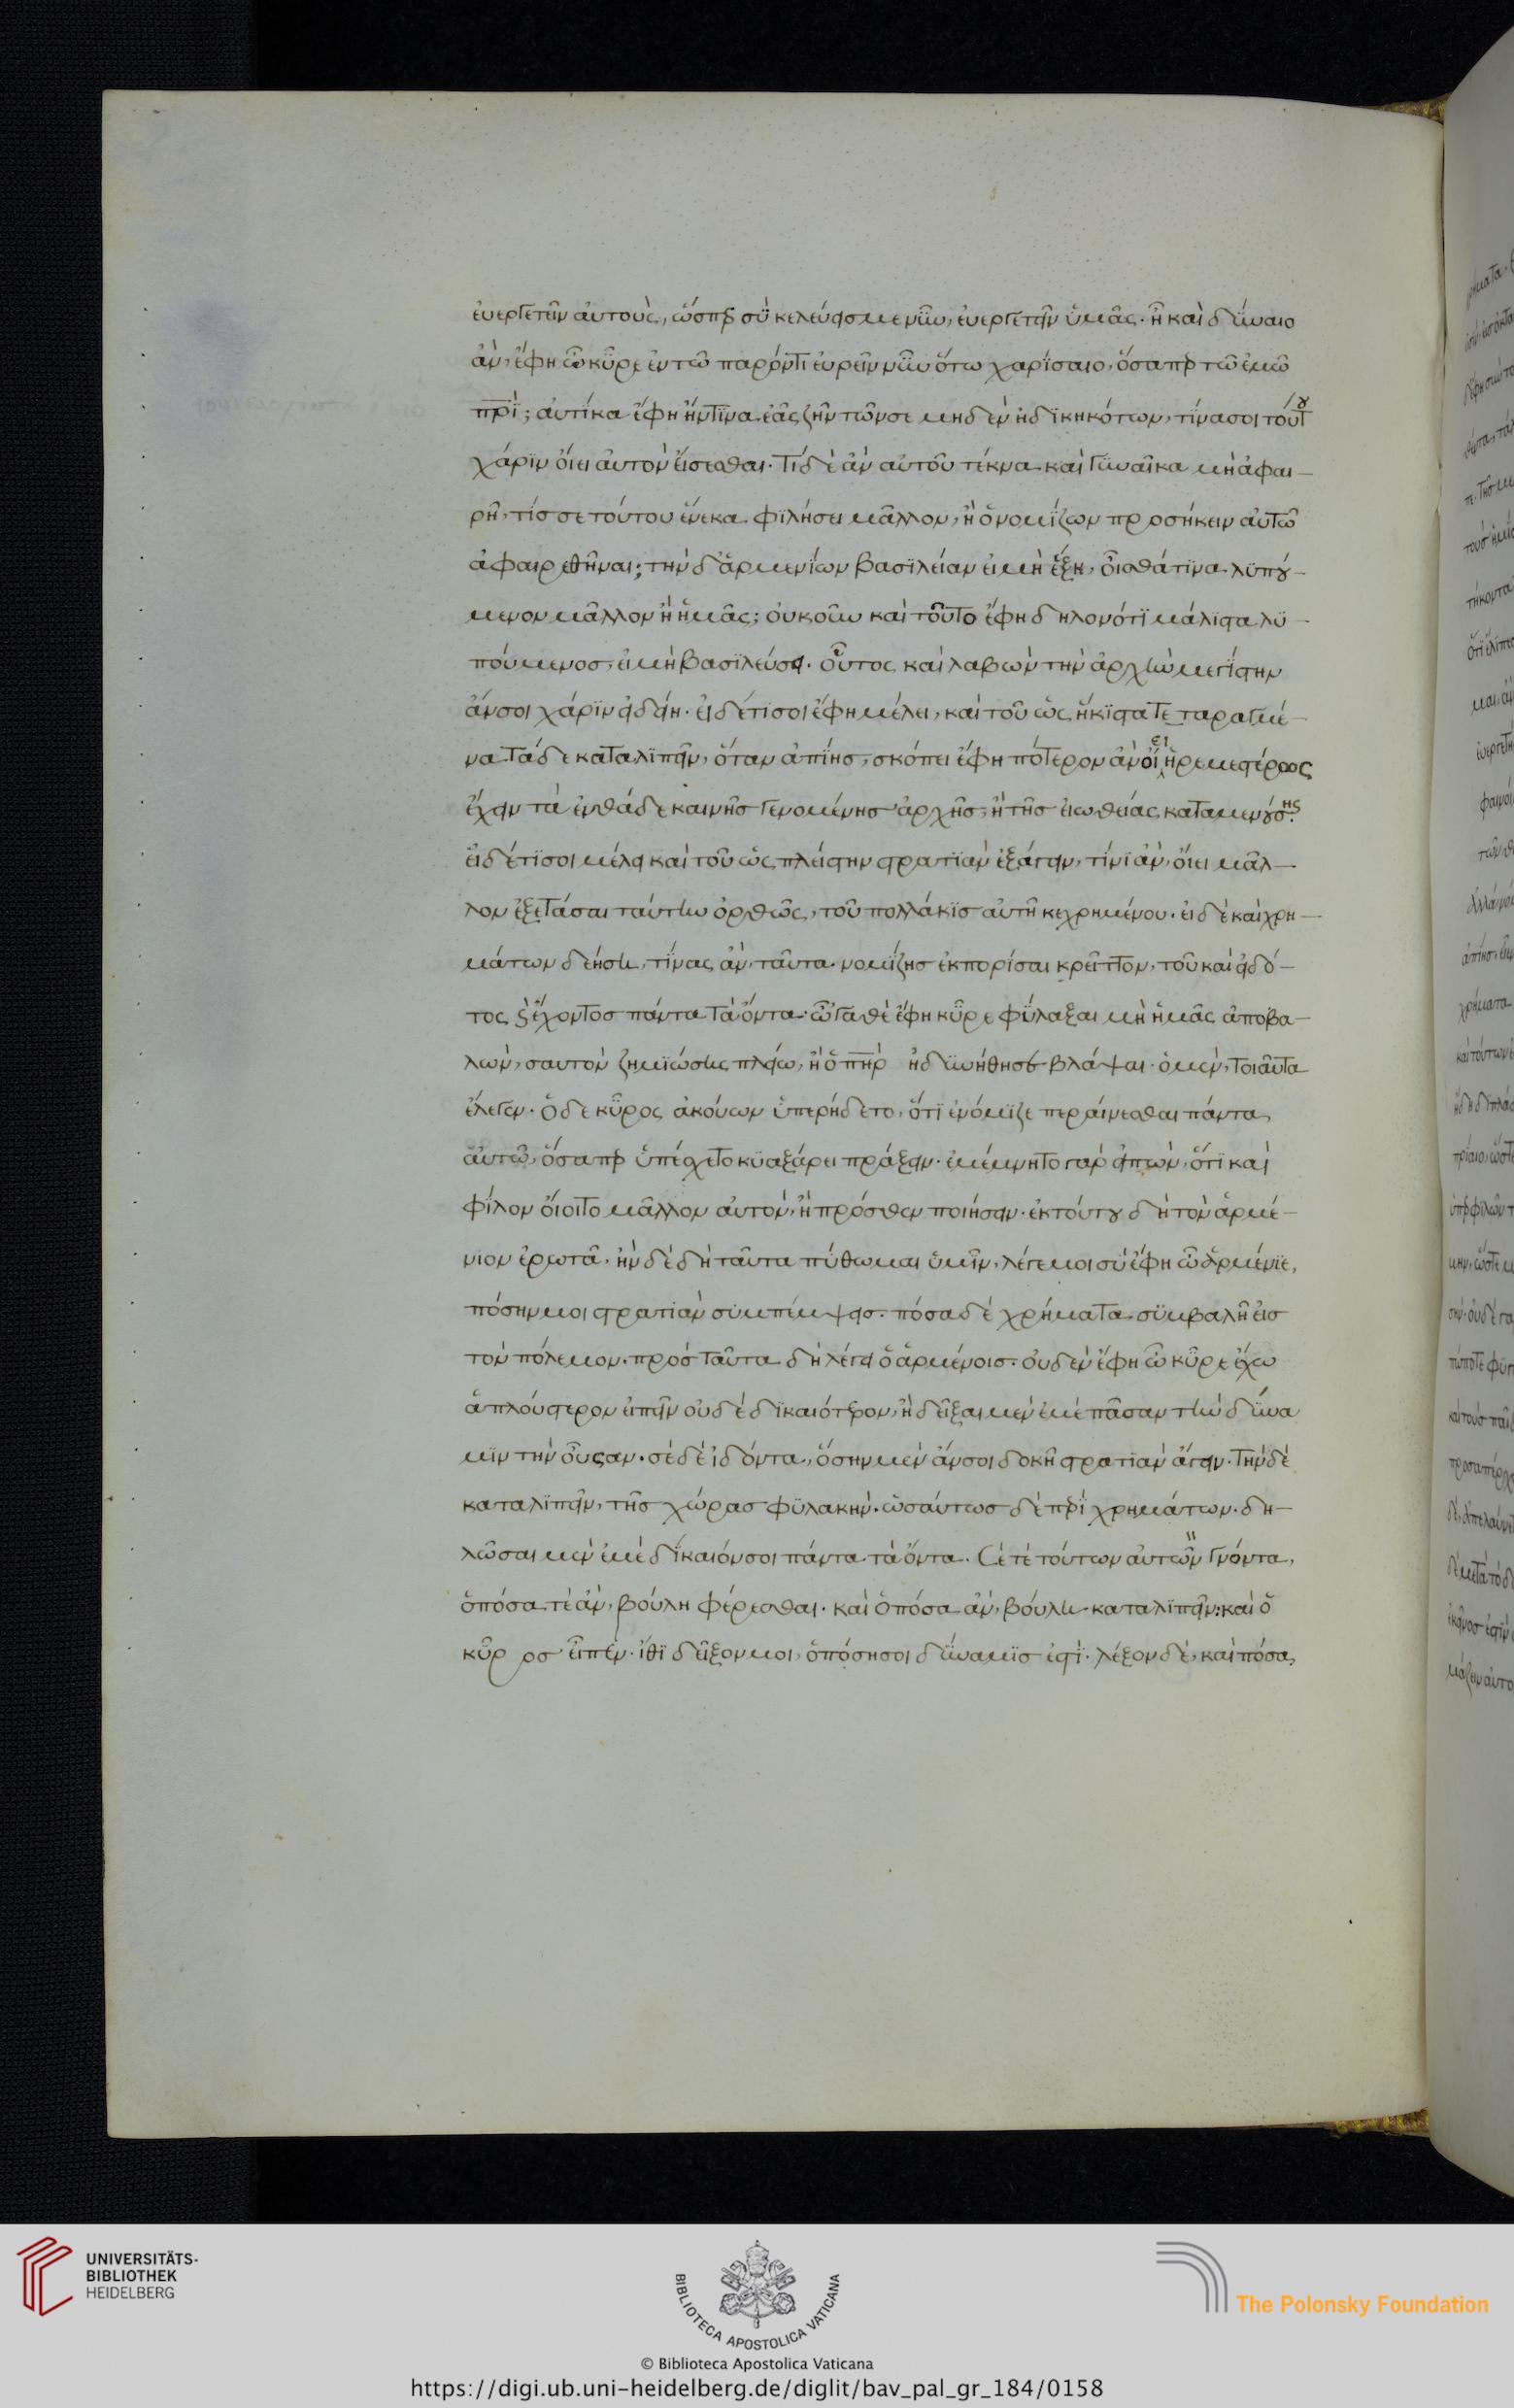 ἐυεργετεῖν αὐτοὺς, ὥσπερ σὺ κελεύεισ μὲ νῦν, ἐυεργετεῖν ὑμᾶς. ἦ καὶ δύναιο
ἂν, ἔφη ὦ κῦρε ἐν τῶ παρόντι ἑυρεῖν νῦν ὅτω χαρίσαιο, ὅσαπερ τῶ ἐμῶ
πρὶ; αὐτίκα ἔφη ἥντινα ἐᾶς ζῆν τῶν σε μηδὲν ἠδικηκότων, τίνα σοι τούτου
χάριν ὄιει αὐτὸν ἔισεσθαι. τί δὲ ἂν αὐτοῦ τέκνα καὶ γυναῖκα μὴ ἀφαι-
ρῆ, τίς σε τούτου ἕνεκα φιλήσει μᾶλλον, ἢ ὁ νομίζων προσήκειν αὐτῶ
ἀφαιρεθῆναι; τὴν δ' ἀρμενίων βασιλείαν ἐι μὴ ἕξη, ὄισθά τινα λυπού-
μενον μᾶλλον ἢ ἡμᾶς; οὐκοῦν καὶ τοῦτο ἔφη δηλονότι μάλιστα λυ-
πούμενοσ, ἐι μὴ βασιλεύσει. οὗτος καὶ λαβὼν τὴν ἀρχὴν μεγίστην
ἄν σοι χάριν εἰδείη. ἐι δέ τι σοι ἔφη μέλει, καὶ τοῦ ὡς ἥκιστα τεταραγμέ-
να τάδε καταλιπεῖν, ὅταν ἀπίησ, σκόπει ἔφη πότερον ἂν οἴει ἠρεμεστέρως
ἔχειν τὰ ἐνθάδε καινῆσ γενομένησ ἀρχῆσ, ἢ τῆσ ἐιωθείας καταμενούσης.
ἐι δέ τι σοι μέλει καὶ τοῦ ὡς πλείστην στρατιὰν ἐξάγειν, τίνι ἂν, ὄιει μᾶλ-
λον ἐξετάσαι ταύτην ὀρθῶς, τοῦ πολλάκισ αὐτῆ κεχρημένου. ἐι δὲ καὶ χρη-
μάτων δεήση, τίνας ἂν, ταῦτα νομίζησ ἐκπορίσαι κρεῖττον, τοῦ καὶ εἰδό-
τος καὶ ἔχοντοσ πάντα τὰ ὄντα. ὦγαθὲ ἔφη κῦρε φύλαξαι μὴ ἡμᾶς ἀποβα-
λὼν, σαυτὸν ζημιώσης πλείω, ἢ ὁ πηρ ἠδυνήθησε βλάψαι. ὁ μὲν, τοιαῦτα
ἔλεγεν. ὁ δὲ κῦρος ἀκούων ὑπερήδετο, ὅτι ἐνόμιζε περαίνεσθαι πάντα
ἀυτῶ, ὅσαπερ ὑπέσχετο κυαξάρει πράξειν. ἐμέμνητο γὰρ εἰπὼν, ὅτι καὶ
φίλον ὄιοιτο μᾶλλον αὐτὸν, ἢ πρόσθεν ποιήσειν. ἐκ τούτου δὴ τὸν ἀρμέ-
νιον ἐρωτᾶ. ἢν δὲ δὴ ταῦτα πύθωμαι ὑμῖν, λέγε μοι σὺ ἔφη ὦ ἀρμένιε,
πόσην μοι στρατιὰν συμπέμψεισ. πόσα δὲ χρήματα συμβαλῆ ἐισ
τὸν πόλεμον. πρὸσ ταῦτα δὴ λέγει ὁ ἀρμένοισ. οὐδὲν ἔφη ὦ κῦρε ἔχω
ἁπλούστερον ἐιπεῖν οὐδὲ δικαιότερον, ἢ δεῖξαι μὲν ἐμὲ πᾶσαν τὴν δύνα
μιν τὴν οὖσαν. σὲ δὲ ἰδόντα, ὅσην μὲν ἄν σοι δοκῆ στρατιὰν ἄγειν. τὴν δὲ
καταλιπεῖν, τῆσ χώρασ φυλακήν. ὡσάυτωσ δὲ περὶ χρημάτων. δη-
λῶσαι μὲν ἐμὲ δίκαιόν σοι πάντα τὰ ὄντα. Σέ τε τούτων αὐτῶν γνόντα,
ὁπόσα τὲ ἂν, βούλη φέρεσθαι. καὶ ὁπόσα ἂν, βούλη καταλιπεῖν: καὶ ὁ
κῦρ ος εἶπεν. ἴθι δεῖξον μοι, ὁπόση σοι δύναμισ ἐστὶ. λέξον δὲ, καὶ πόσα
UNIVERSITÄTS-
BIBLIOTHEK
HEIDELBERG
BIBLIOTECA APOSTOLICA VATICANA
The Polonsky Foundation
© Biblioteca Apostolica Vaticana
https://digi.ub.uni-heidelberg.de/diglit/bav_pal_gr_184/0158